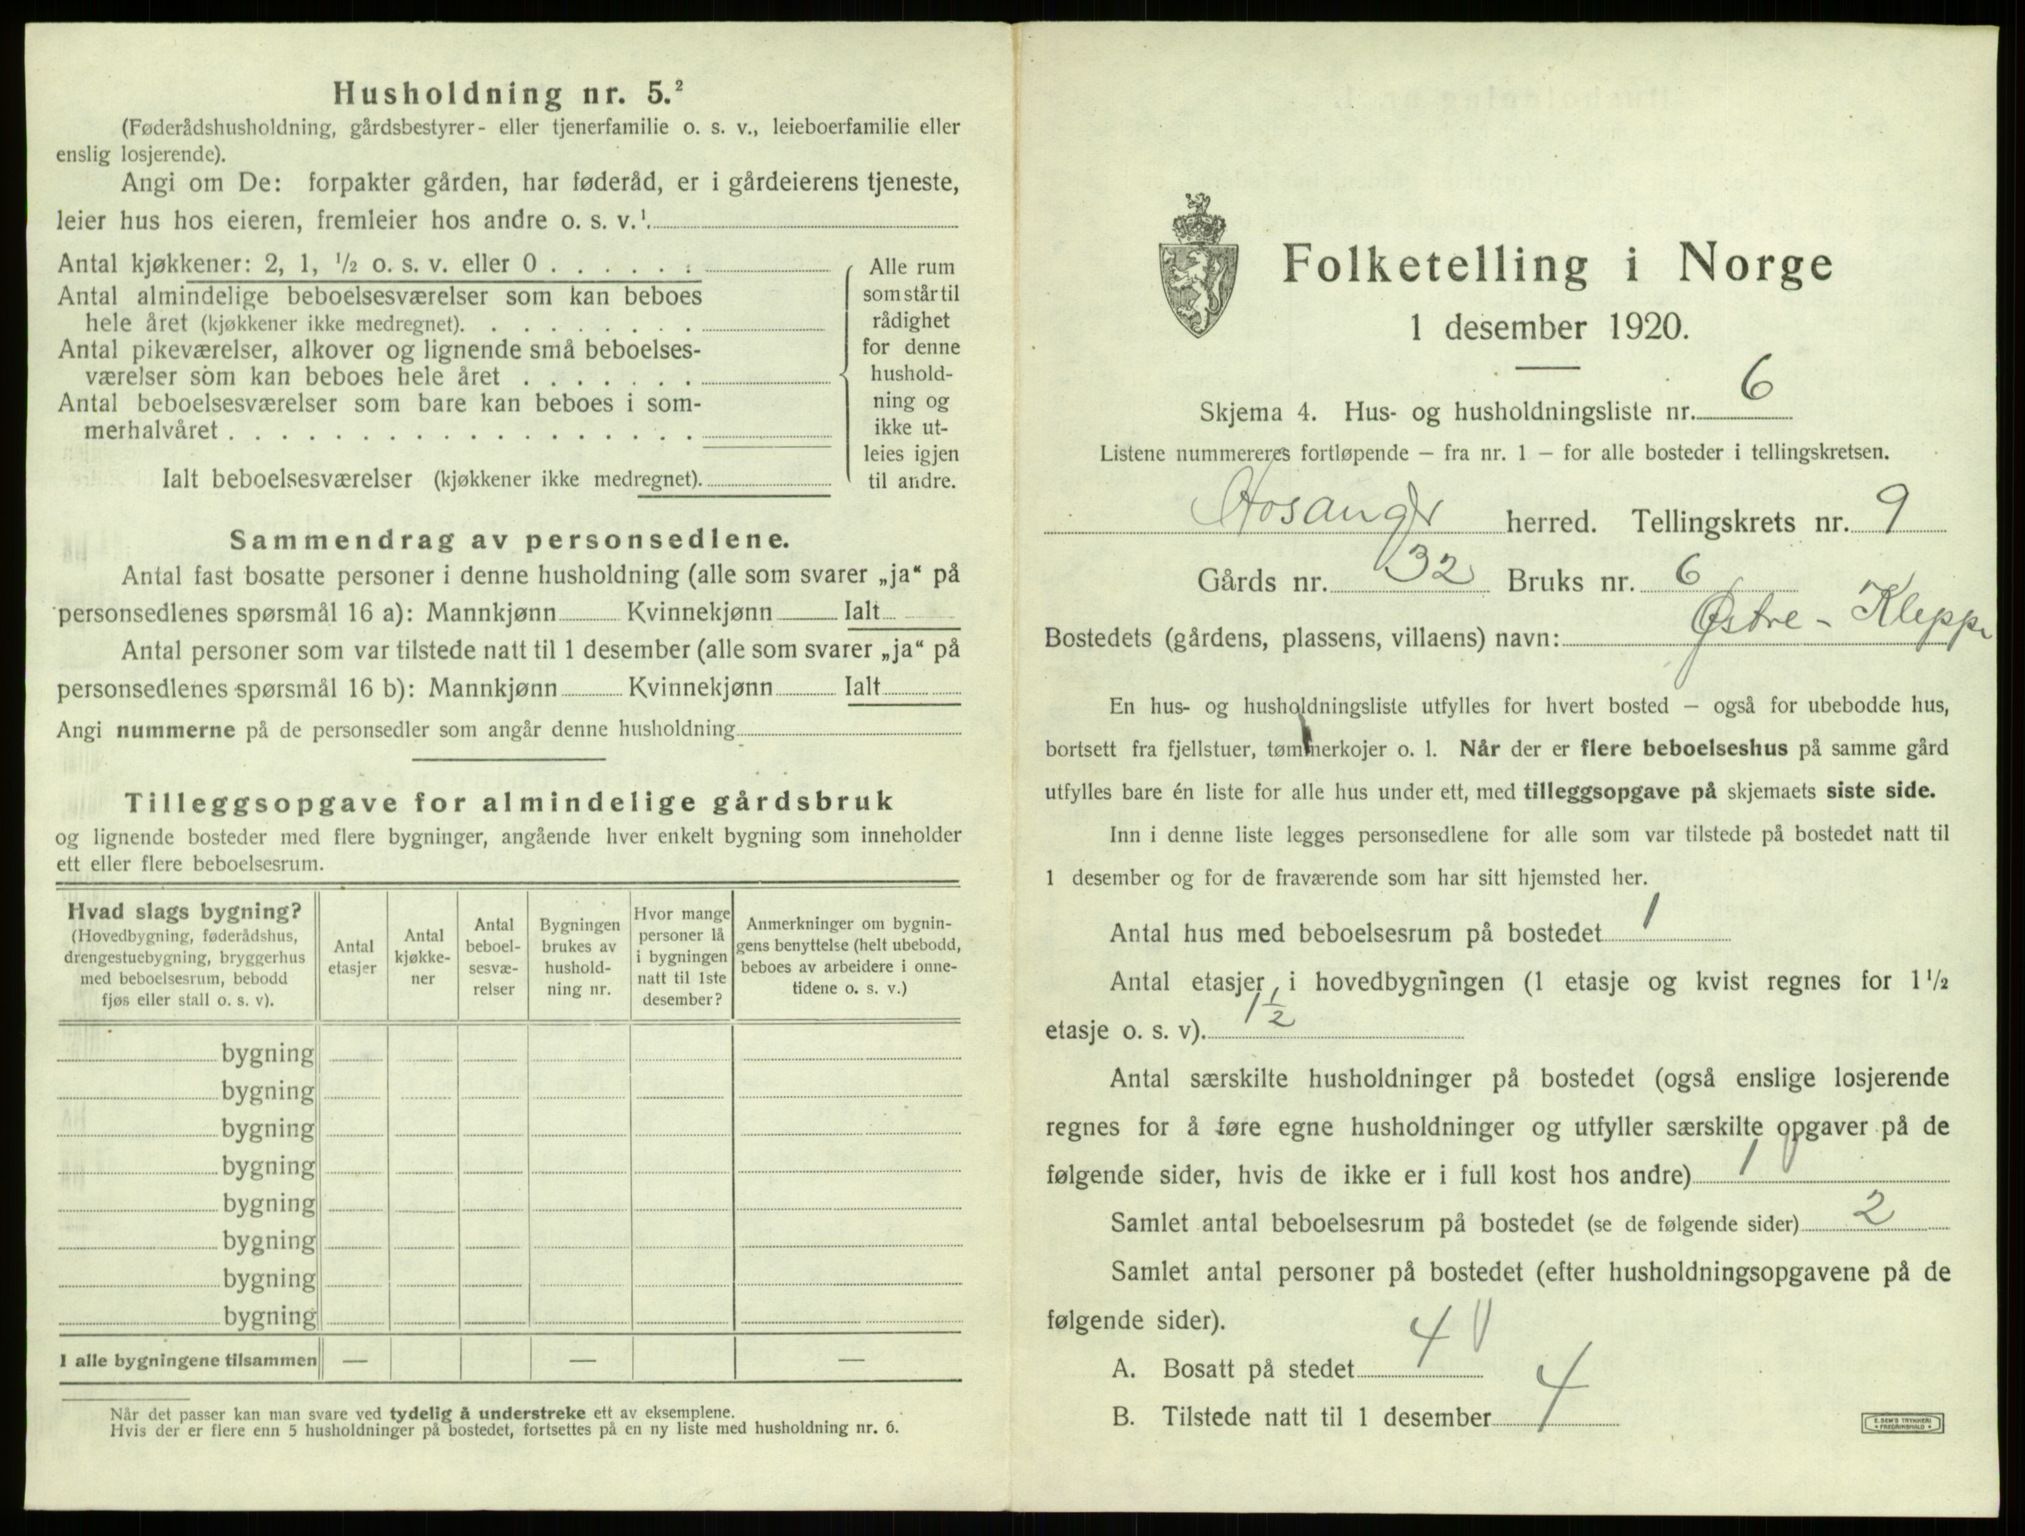 Husholdning nr. 5.²
(Føderådshusholdning, gårdsbestyrer- eller tjenerfamilie o. s. v., leieboerfamilie eller
enslig losjerende).
Angi om De: forpakter gården, har føderåd, er i gårdeierens tjeneste,
leier hus hos eieren, fremleier hos andre o. s. v.¹
Antal kjøkkener: 2, 1, ½ o. s. v. eller 0
Antal almindelige beboelsesværelser som kan beboes
hele året (kjøkkener ikke medregnet).
Antal pikeværelser, alkover og lignende små beboelses-
værelser som kan beboes hele året
Antal beboelsesværelser som bare kan beboes i som-
merhalvåret
Ialt beboelsesværelser (kjøkkener ikke medregnet).
Alle rum
som står til
rådighet
for denne
hushold-
ning og
ikke ut-
leies igjen
til andre.
Sammendrag av personsedlene.
Antal fast bosatte personer i denne husholdning (alle som svarer „ja“ på
personsedlenes spørsmål 16 a): Mannkjønn Kvinnekjønn Ialt
Antal personer som var tilstede natt til 1 desember (alle som svarer „ja“ på
personsedlenes spørsmål 16 b): Mannkjønn Kvinnekjønn Ialt
Angi nummerne på de personsedler som angår denne husholdning
Tilleggsopgave for almindelige gårdsbruk
og lignende bosteder med flere bygninger, angående hver enkelt bygning som inneholder
ett eller flere beboelsesrum.
Hvad slags bygning?
(Hovedbygning, føderådshus,
drengestuebygning, bryggerhus
med beboelsesrum, bebodd
fjøs eller stall o. s. v).
Antal
etasjer
Antal
kjøkke-
ner
Antal
beboel-
sesvæ-
relser
Bygningen
brukes av
hushold-
ning nr.
Hvor mange
personer lå
i bygningen
natt til 1ste
desember?
Anmerkninger om bygnin-
gens benyttelse (helt ubebodd,
beboes av arbeidere i onne-
tidene o. s. v.)
bygning
bygning
bygning
bygning
bygning
bygning
bygning
bygning
I alle bygningene tilsammen — — —
Når det passer kan man svare ved tydelig å understreke ett av eksemplene.
Hvis der er flere enn 5 husholdninger på bostedet, fortsettes på en ny liste med husholdning nr. 6.
Folketelling i Norge
1 desember 1920.
Skjema 4. Hus- og husholdningsliste nr. 6
Listene nummereres fortløpende – fra nr. 1 – for alle bosteder i tellingskretsen.
Hosanger herred. Tellingskrets nr. 9
Gårds nr. 32 Bruks nr. 6
Bostedets (gårdens, plassens, villaens) navn: Østre - Kleppe
En hus- og husholdningsliste utfylles for hvert bosted – også for ubebodde hus,
bortsett fra fjellstuer, tømmerkojer o. l. Når der er flere beboelseshus på samme gård
utfylles bare én liste for alle hus under ett, med tilleggsopgave på skjemaets siste side.
Inn i denne liste legges personsedlene for alle som var tilstede på bostedet natt til
1 desember og for de fraværende som har sitt hjemsted her.
Antal hus med beboelsesrum på bostedet 1
Antal etasjer i hovedbygningen (1 etasje og kvist regnes for 1½
etasje o. s. v). 1 ½
Antal særskilte husholdninger på bostedet (også enslige losjerende
regnes for å føre egne husholdninger og utfyller særskilte opgaver på de
følgende sider, hvis de ikke er i full kost hos andre) 1
Samlet antal beboelsesrum på bostedet (se de følgende sider) 2
Samlet antal personer på bostedet (efter husholdningsopgavene på de
følgende sider).
A. Bosatt på stedet 4
B. Tilstede natt til 1 desember 4
E. SEM'S TRYKKERI
FREDRIKSHALD